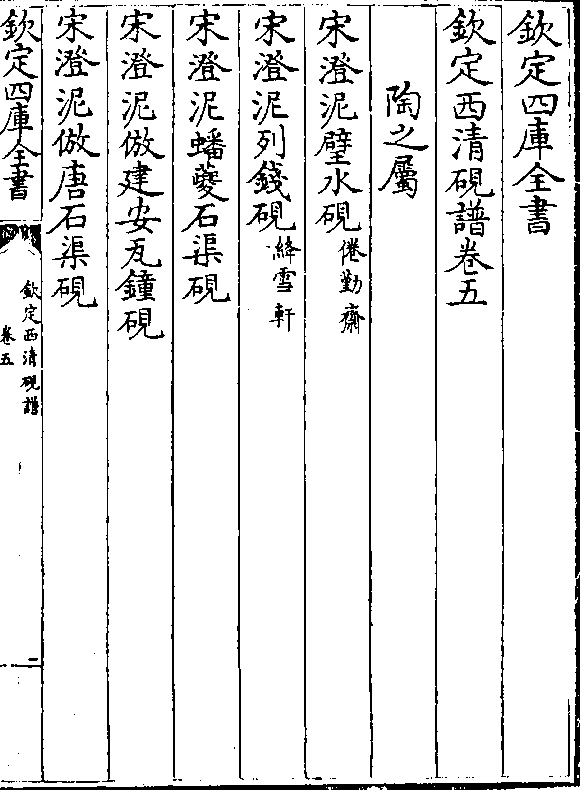 欽定四庫全書
欽定西清硯譜卷五
陶之屬
宋澄泥璧水硯 倦勤齋
宋澄泥列錢硯 絳雪軒
宋澄泥蟠夔石渠硯
宋澄泥倣建安瓦鐘硯
宋澄泥倣唐石渠硯
欽定四庫全書
欽定西清硯譜
卷五
一